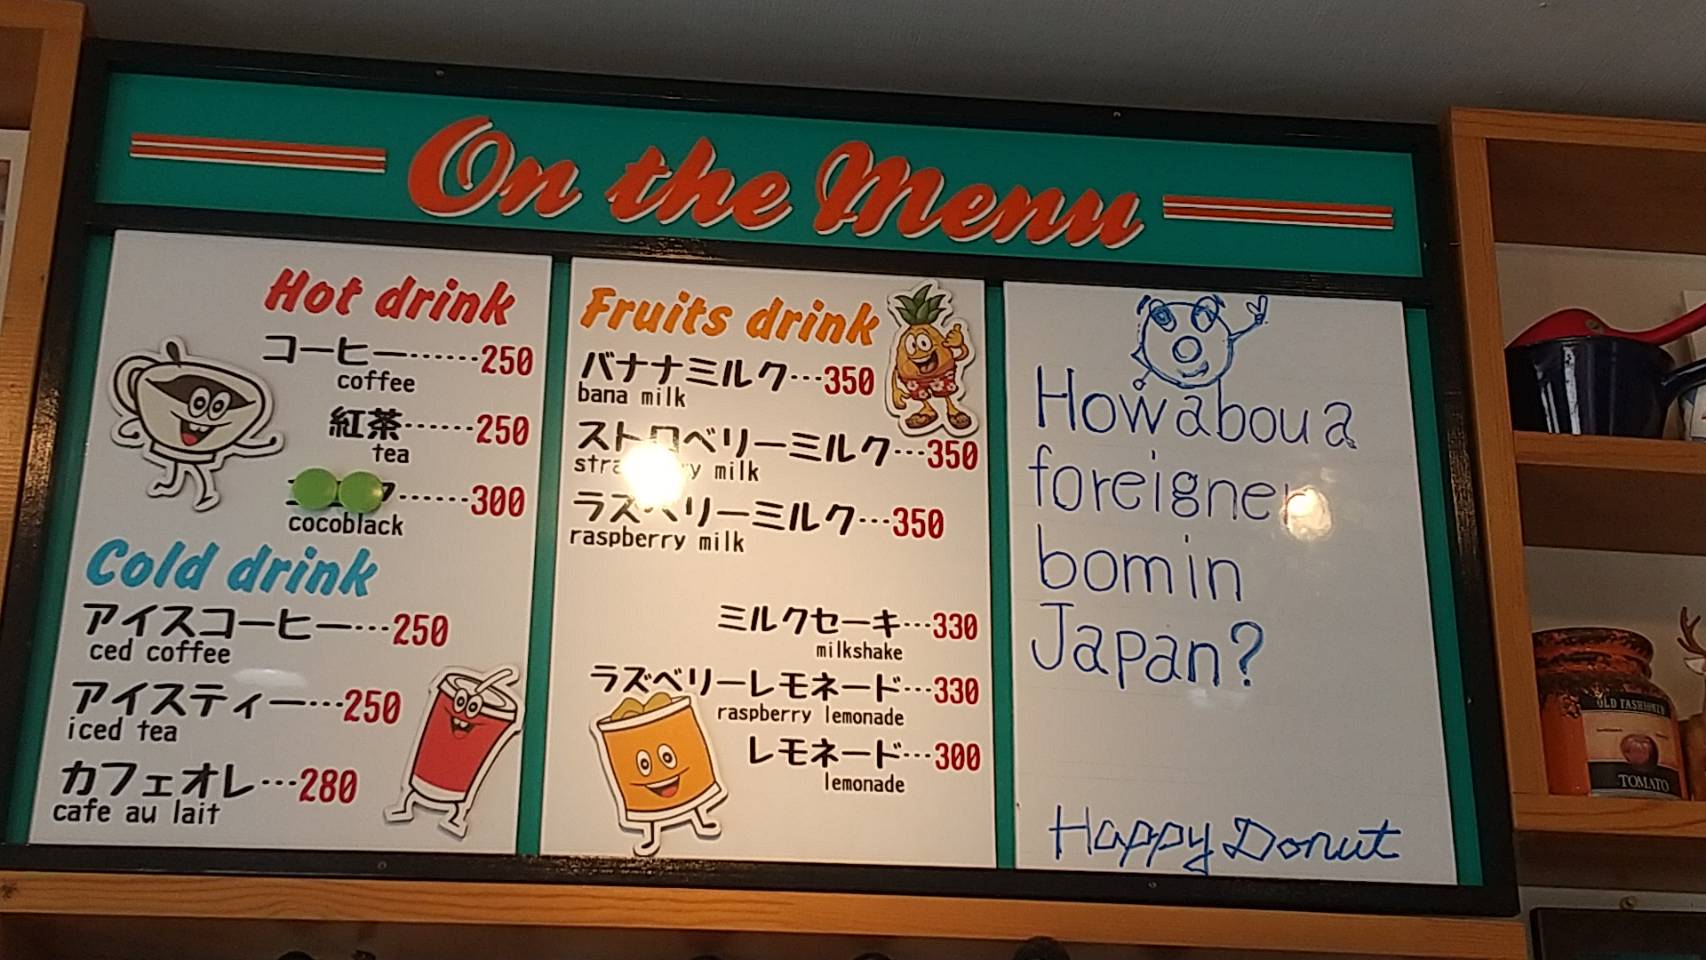 On the Menu
Hot drink
コーヒー……250
coffee
紅茶……250
tea
……300
cocoblack
Cold drink
アイスコーヒー…250
ced coffee
アイスティー…250
iced tea
カフェオレ…280
cafe au lait
Fruits drink
バナナミルク…350
bana milk
ストロベリーミルク…350
milk
ラズベリーミルク…350
raspberry milk
ミルクセーキ…330
milkshake
ラズベリーレモネード…330
raspberry lemonade
レモネード…300
lemonade
How abou a
foreigner
bom in
Japan?
Happy Donut
OLD FASHION'D
TOMATO